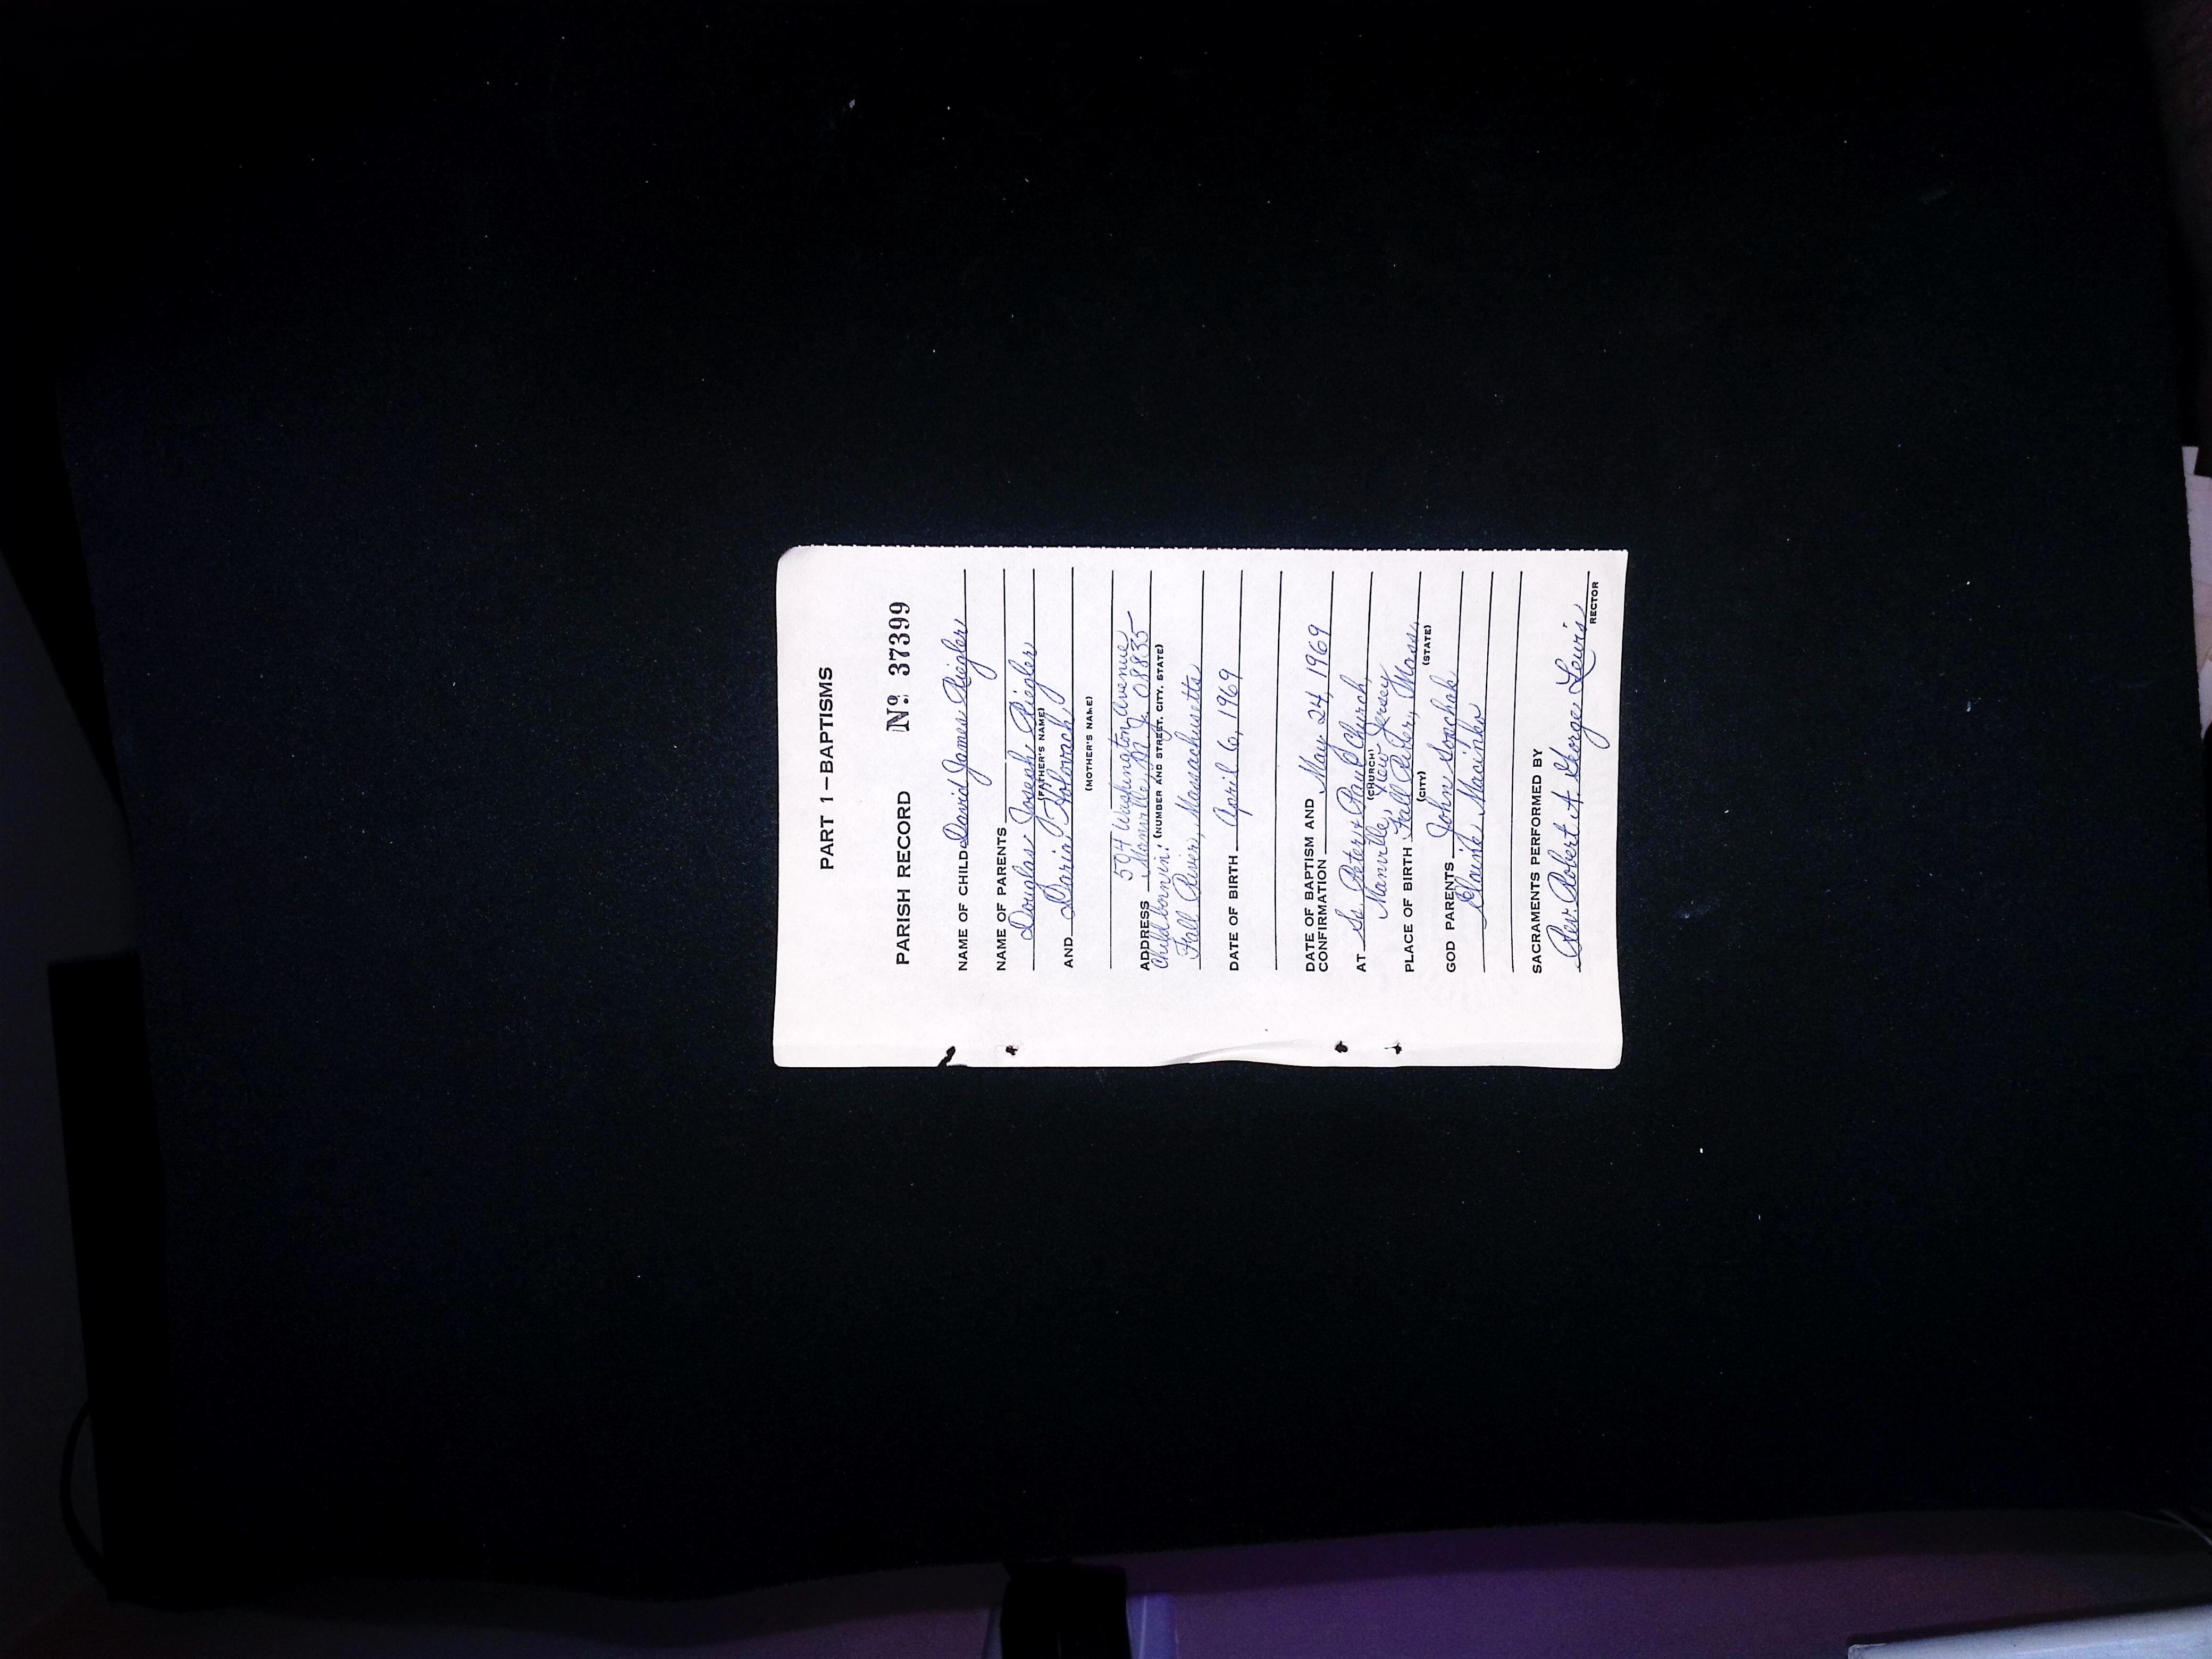 PART 1—BAPTISMS
PARISH RECORD Nº 37399
NAME OF CHILD David James Riegler
NAME OF PARENTS
Douglas Joseph Riegler
(FATHER'S NAME)
AND Daria Holovach
(MOTHER'S NAME)
504 Washington Avenue
ADDRESS Manville, N. J. 08835
Child born in: (NUMBER AND STREET, CITY, STATE)
Fall River, Massachusetts
DATE OF BIRTH April 6, 1969
DATE OF BAPTISM AND
CONFIRMATION May 24, 1969
AT Ss. Peter & Paul Church,
(CHURCH)
Manville, New Jersey
PLACE OF BIRTH Fall River, Mass.
(CITY) (STATE)
GOD PARENTS John Sopchak
Elaine Macinko
SACRAMENTS PERFORMED BY
Rev. Robert A. George Lewis
RECTOR